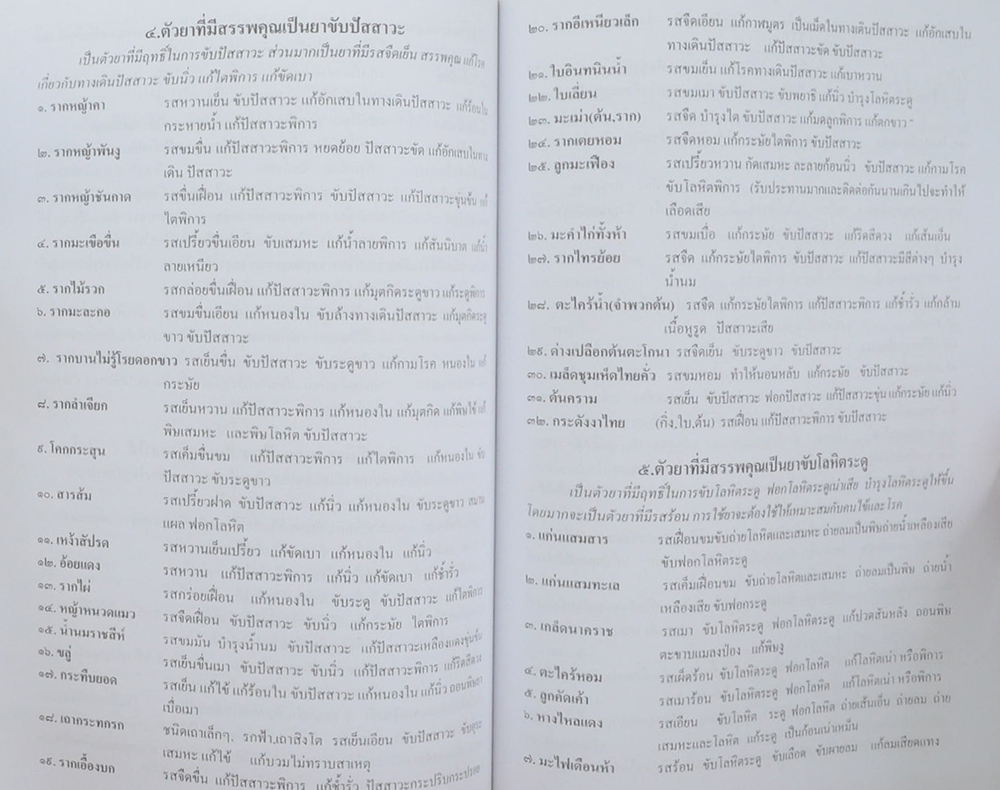 ๔.ตัวยาที่มีสรรพคุณเป็นยาขับปัสสาวะ
เป็นตัวยาที่มีฤทธิ์ในการขับปัสสาวะ ส่วนมากเป็นยาที่มีรสจืดเย็น สรรพคุณ แก้โรค
เกี่ยวกับทางเดินปัสสาวะ ขับนิ่ว แก้ไตพิการ แก้ขัดเบา
๑. รากหญ้าคา รสหวานเย็น ขับปัสสาวะ แก้อักเสบในทางเดินปัสสาวะ แก้ร้อนใน
กระหายน้ำ แก้ปัสสาวะพิการ
๒. รากหญ้าพันงู รสขมขื่น แก้ปัสสาวะพิการ หยดย้อย ปัสสาวะขัด แก้อักเสบในทาง
เดิน ปัสสาวะ
๓. รากหญ้าชันกาด รสขื่นเฝื่อน แก้ปัสสาวะพิการ ขับปัสสาวะ แก้ปัสสาวะขุ่นข้น แก้
ไตพิการ
๔. รากมะเขือขื่น รสเปรี้ยวขื่นเอียน ขับเสมหะ แก้น้ำลายพิการ แก้สันนิบาต แก้น้ำ
ลายเหนียว
๕. รากไม้รวก รสกล่อยขื่นเฝื่อน แก้ปัสสาวะพิการ แก้มุตกิตระดูขาว แก้ระดูพิการ
๖. รากมะละกอ รสขมขื่นเอียน แก้หนองใน ขับล้างทางเดินปัสสาวะ แก้มุตกิตระดู
ขาว ขับปัสสาวะ
๗. รากบานไม่รู้โรยดอกขาว รสเย็นขื่น ขับปัสสาวะ ขับระดูขาว แก้กามโรค หนองใน แก้
กระษัย
๘. รากลำเจียก รสเย็นหวาน แก้ปัสสาวะพิการ แก้หนองใน แก้มุตกิด แก้พิษไข้ แก้
พิษเสมหะ และพิษโลหิต ขับปัสสาวะ
๙. โคกกระสุน รสเค็มขื่นขม แก้ปัสสาวะพิการ แก้ไตพิการ แก้หนองใน ขับ
ปัสสาวะ ขับระดูขาว
๑๐. สารส้ม รสเปรี้ยวฝาด ขับปัสสาวะ แก้นิ่ว แก้หนองใน ขับระดูขาว สมาน
แผล ฟอกโลหิต
๑๑. เหง้าสัปรด รสหวานเย็นเปรี้ยว แก้ขัดเบา แก้หนองใน แก้นิ่ว
๑๒. อ้อยแดง รสหวาน แก้ปัสสาวะพิการ แก้นิ่ว แก้ขัดเบา แก้ช้ำรั่ว
๑๓. รากไผ่ รสกร่อยเฝื่อน แก้หนองใน ขับระดู ขับปัสสาวะ แก้ไตพิการ
๑๔. หญ้าหนวดแมว รสจืดเฝื่อน ขับปัสสาวะ ขับนิ่ว แก้กระษัย ไตพิการ
๑๕. น้ำนมราชสีห์ รสขมมัน บำรุงน้ำนม ขับปัสสาวะ แก้ปัสสาวะเหลืองแดงขุ่นข้น
๑๖. ขลู่ รสเย็นขื่นเมา ขับปัสสาวะ ขับนิ่ว แก้ปัสสาวะพิการ แก้ริดสีดวง
๑๗. กระทืบยอด รสเย็น แก้ไข้ แก้ร้อนใน ขับปัสสาวะ แก้หนองใน แก้นิ่ว ถอนพิษยา
เบื่อเมา
๑๘. เถากระทกรก ชนิดเถาเล็กๆ. รกฟ้า,เถาสิงโต รสเย็นเอียน ขับปัสสาวะ
เสมหะ แก้ไข้ แก้บวมไม่ทราบสาเหตุ
๑๙. รากเอื้องบก รสจืดขื่น แก้ปัสสาวะพิการ แก้ช้ำรั่ว ปัสสาวะกระปริบกระปรอย
๒๐. รากอีเหนียวเล็ก รสจืดเอียน แก้กาฬมูตร เป็นเม็ดในทางเดินปัสสาวะ แก้อักเสบใน
ทางเดินปัสสาวะ แก้ปัสสาวะขัด ขับปัสสาวะ
๒๑. ใบอินทนินน้ำ รสขมเย็น แก้โรคทางเดินปัสสาวะ แก้เบาหวาน
๒๒. ใบเลี่ยน รสขมเมา ขับปัสสาวะ ขับพยาธิ แก้นิ่ว บำรุงโลหิตระดู
๒๓. มะเม่า(ต้น.ราก) รสจืด บำรุงไต ขับปัสสาวะ แก้มดลูกพิการ แก้ตกขาว
๒๔. รากเตยหอม รสจืดหอม แก้กระษัยไตพิการ ขับปัสสาวะ
๒๕. ลูกมะเฟือง รสเปรี้ยวหวาน กัดเสมหะ ละลายก้อนนิ่ว ขับปัสสาวะ แก้กามโรค
ขับโลหิตพิการ (รับประทานมากและติดต่อกันนานเกินไปจะทำให้
เลือดเสีย
๒๖. มะคำไก่ทั้งห้า รสขมเบื่อ แก้กระษัย ขับปัสสาวะ แก้ริดสีดวง แก้เส้นเอ็น
๒๗. รากไทรย้อย รสจืด แก้กระษัยไตพิการ ขับปัสสาวะ แก้ปัสสาวะมีสีต่างๆ บำรุง
น้ำนม
๒๘. ตะไคร้น้ำ(จำพวกต้น) รสจืด แก้กระษัยไตพิการ แก้ปัสสาวะพิการ แก้ช้ำรั่ว แก้กล้าม
เนื้อหูรูด ปัสสาวะเสีย
๒๙. ด่างเปลือกต้นตะโกนา รสจืดเย็น ขับระดูขาว ขับปัสสาวะ
๓๐. เมล็ดชุมเห็ดไทยคั่ว รสขมหอม ทำให้นอนหลับ แก้กระษัย ขับปัสสาวะ
๓๑. ต้นคราม รสเย็น ขับปัสสาวะ ฟอกปัสสาวะ แก้ปัสสาวะขุ่น แก้กระษัย แก้นิ่ว
๓๒. กระดังงาไทย (กิ่ง.ใบ.ต้น) รสเฝื่อน แก้ปัสสาวะพิการ ขับปัสสาวะ
๕.ตัวยาที่มีสรรพคุณเป็นยาขับโลหิตระดู
เป็นตัวยาที่มีฤทธิ์ในการขับโลหิตระดู ฟอกโลหิตระดูเน่าเสีย บำรุงโลหิตระดูให้ขึ้น
โดยมากจะเป็นตัวยาที่มีรสร้อน การใช้ยาจะต้องใช้ให้เหมาะสมกับคนไข้และโรค
๑. แก่นแสมสาร รสเฝื่อนขมขับถ่ายโลหิตและเสมหะ ถ่ายลมเป็นพิษถ่ายน้ำเหลืองเสีย
ขับฟอกโลหิตระดู
๒. แก่นแสมทะเล รสเค็มเฝื่อนขม ขับถ่ายโลหิตและเสมหะ ถ่ายลมเป็นพิษ ถ่ายน้ำ
เหลืองเสีย ขับฟอกระดู
๓. เกล็ดนาคราช รสเมา ขับโลหิตระดู ฟอกโลหิตระดู แก้ปวดสันหลัง ถอนพิษ
ตะขาบแมลงป่อง แก้พิษงู
๔. ตะไคร้หอม รสเผ็ดร้อน ขับโลหิตระดู ฟอกโลหิต แก้โลหิตเน่า หรือพิการ
๕. ลูกคัดเค้า รสเมาร้อน ขับโลหิตระดู ฟอกโลหิต แก้โลหิตเน่า หรือพิการ
๖. หางไหลแดง รสเอียน ขับโลหิต ระดู ฟอกโลหิต ถ่ายเส้นเอ็น ถ่ายลม ถ่าย
เสมหะและโลหิต แก้ระดู เป็นก้อนเน่าเหม็น
๗. มะไฟเดือนห้า รสร้อน ขับโลหิตระดู ขับเลือด ขับผายลม แก้ลมเสียดแทง